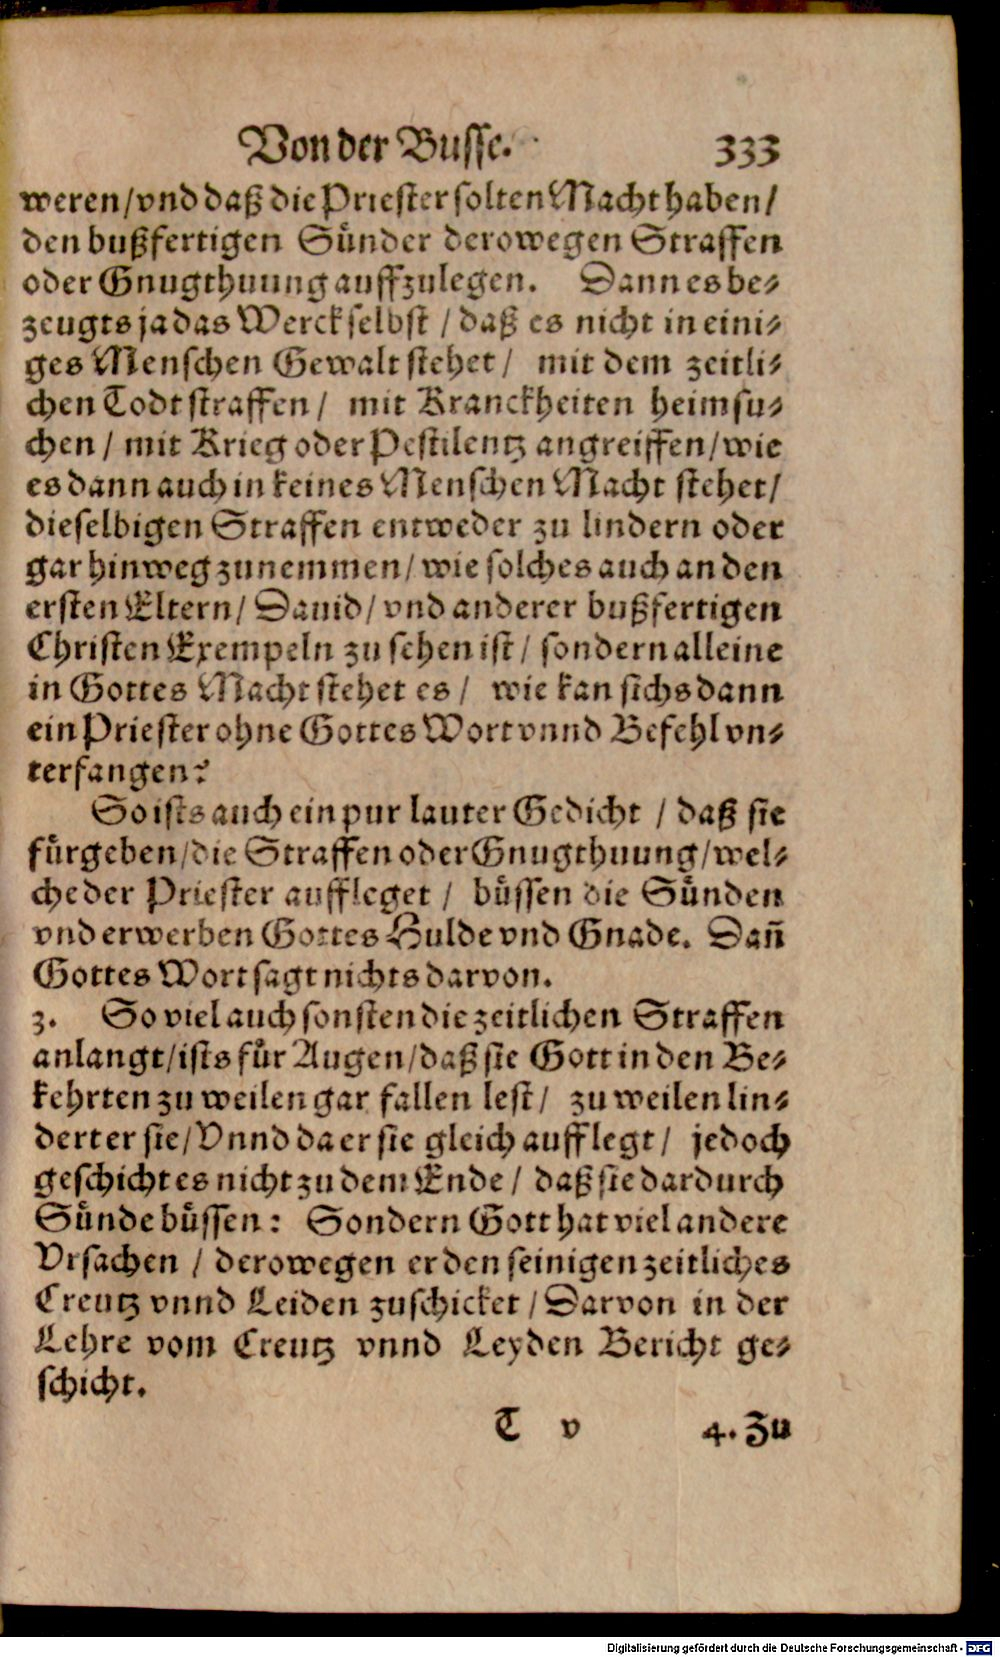 Von der Busse. 333
weren/vnd daß die Priester solten Macht haben/
den bußfertigen Sünder derowegen Straffen
oder Gnugthuung auffzulegen. Dann es be-
zeugts ja das Werck selbst / daß es nicht in eini-
ges Menschen Gewalt stehet / mit dem zeitli-
chen Todt straffen / mit Kranckheiten heimsu-
chen / mit Krieg oder Pestilentz angreiffen/wie
es dann auch in keines Menschen Macht stehet/
dieselbigen Straffen entweder zu lindern oder
gar hinweg zunemmen/ wie solches auch an den
ersten Eltern/ Dauid/ vnd anderer bußfertigen
Christen Exempeln zu sehen ist / sondern alleine
in Gottes Macht stehet es / wie kan sichs dann
ein Priester ohne Gottes Wort vnnd Befehl vn-
terfangen?
So ists auch ein pur lauter Gedicht / daß sie
fürgeben/die Straffen oder Gnugthuung/wel-
che der Priester auffleget / büssen die Sünden
vnd erwerben Gottes Hulde vnd Gnade. Dañ
Gottes Wort sagt nichts darvon.
3. So viel auch sonsten die zeitlichen Straffen
anlangt/ists für Augen/daß sie Gott in den Be-
kehrten zu weilen gar fallen lest/ zu weilen lin-
dert er sie/Vnnd da er sie gleich aufflegt/ jedoch
geschicht es nicht zu dem Ende / daß sie dardurch
Sünde büssen: Sondern Gott hat viel andere
Vrsachen / derowegen er den seinigen zeitliches
Creutz vnnd Leiden zuschicket / Darvon in der
Lehre vom Creutz vnnd Leyden Bericht ge-
schicht.
T v 4. Zu
Digitalisierung gefördert durch die Deutsche Forschungsgemeinschaft - DFG